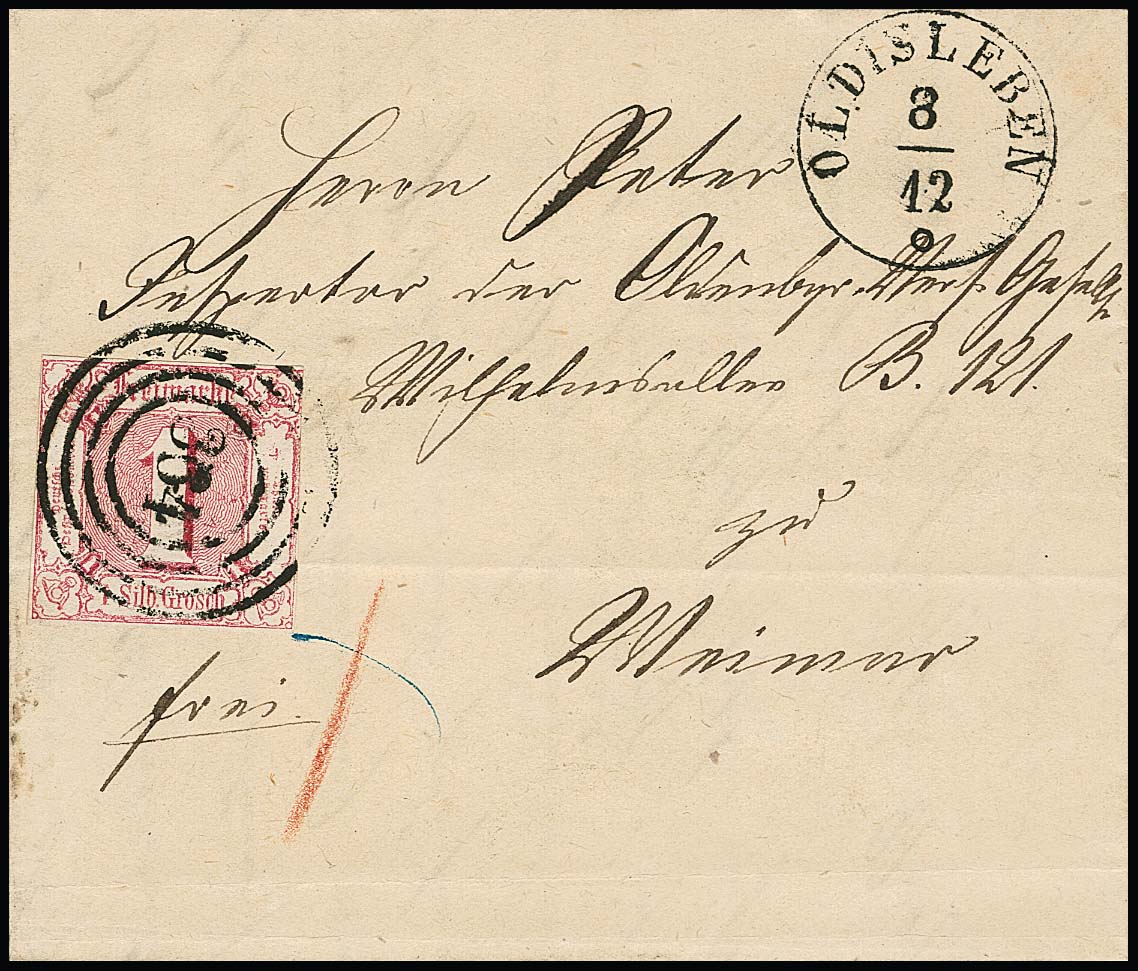 OLDISLEBEN
8
12
Herrn Peter
Inspector der Oldenbgr. Vers. Gesellsch
Wilhelmsallee B. 121.
zu
Weimar
Freimarke
1
1 Silb. Grosch
304
frei.